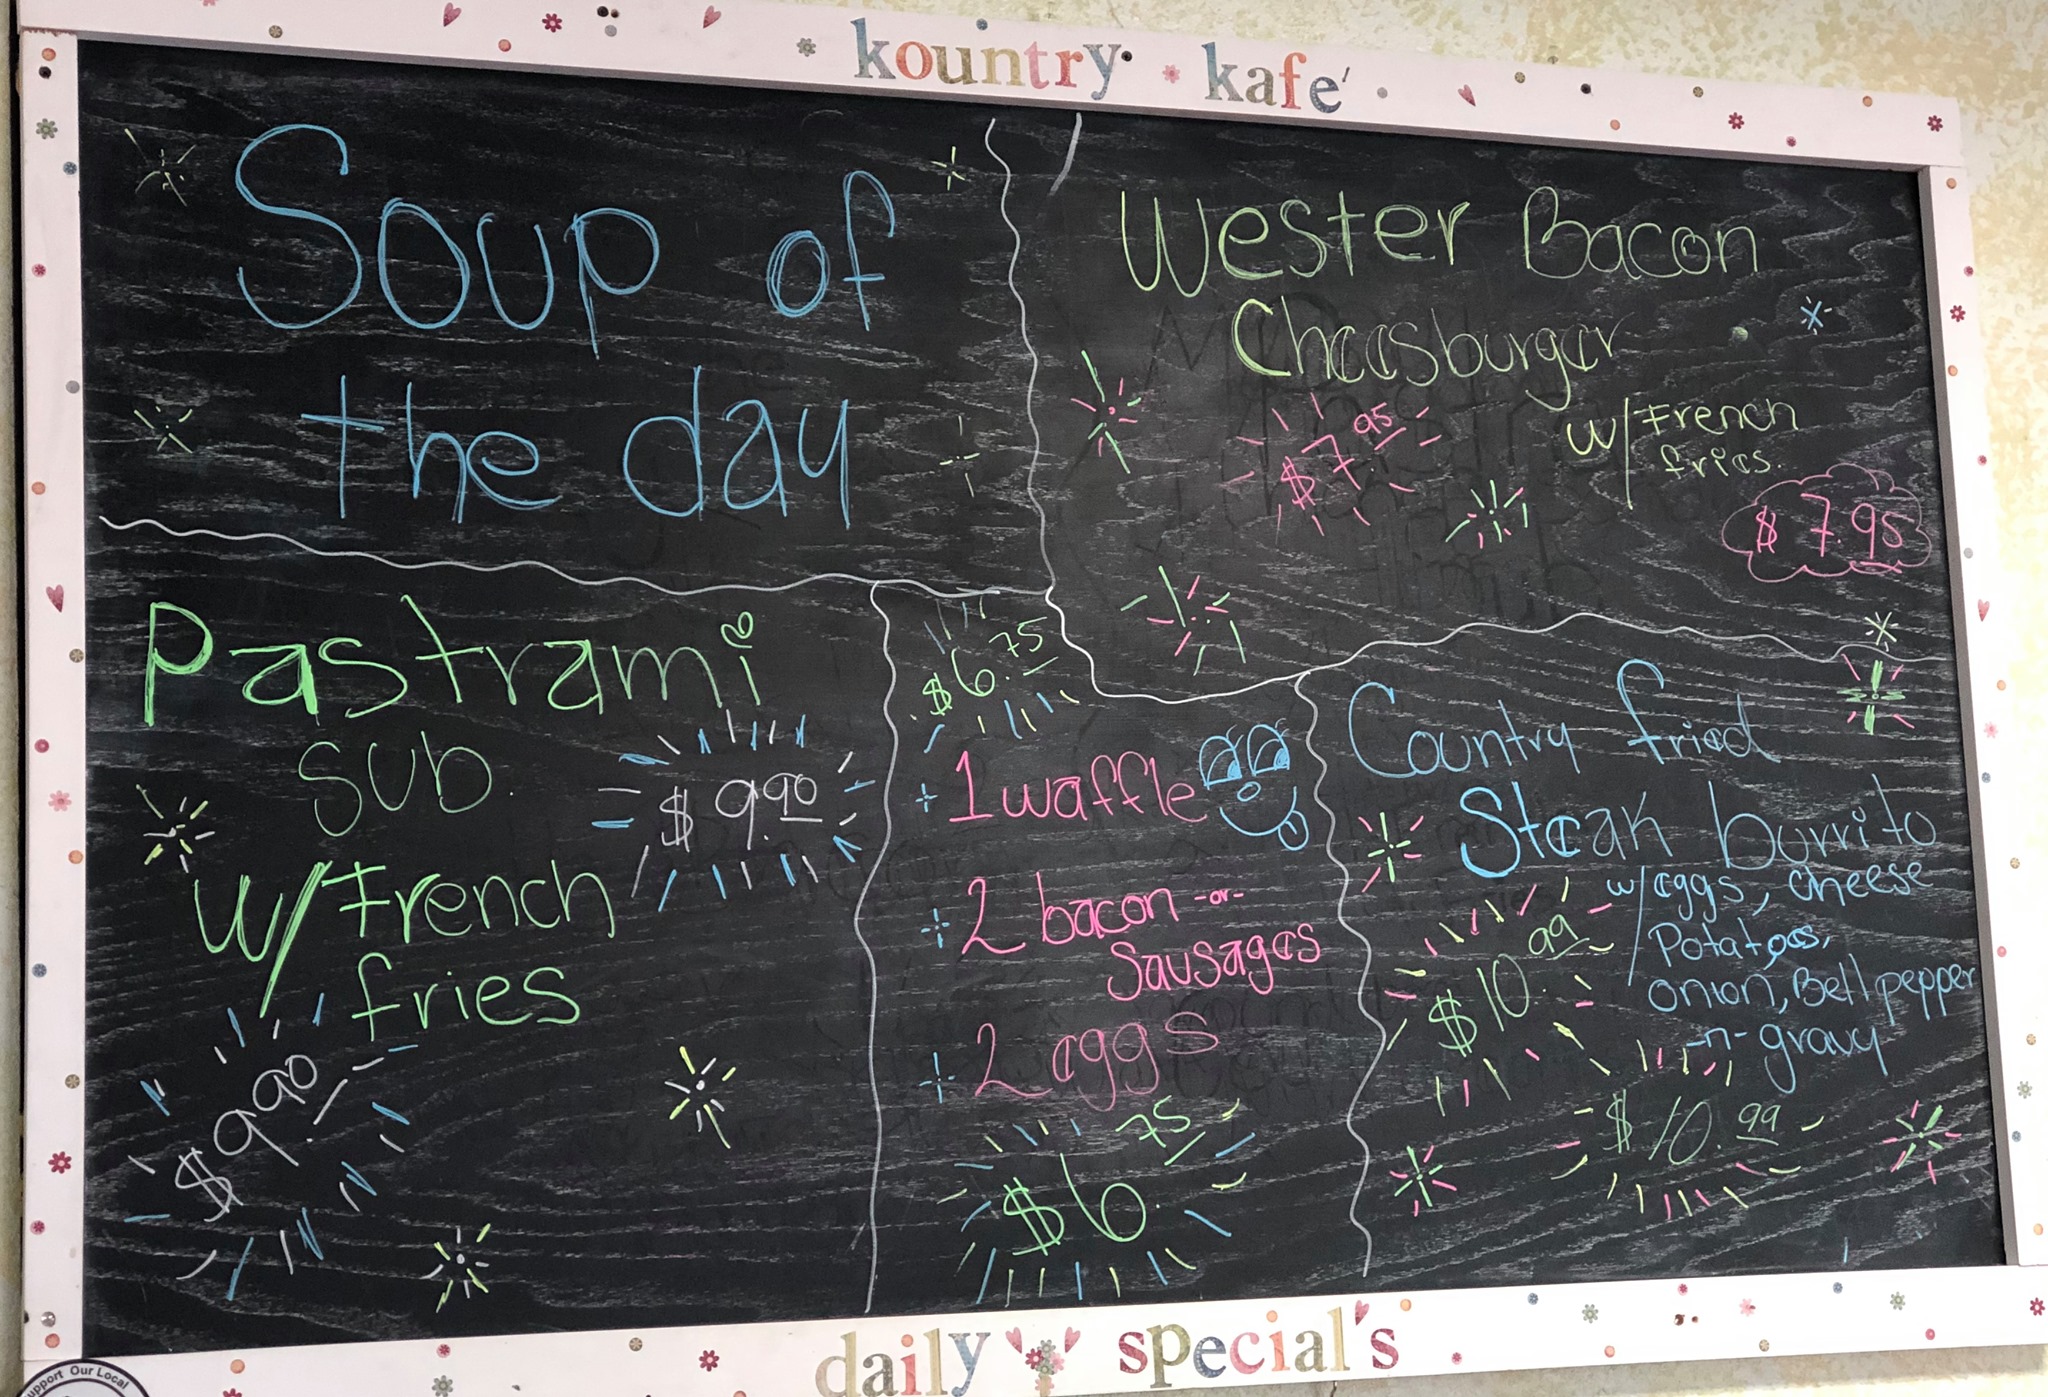 kountry kafe'
Soup of
the day
Wester Bacon
Cheesburger
w/French
fries.
$7.95
$7.95
Pastrami
sub.
w/French
fries
$9.90
$9.90
$6.75
1 waffle
2 bacon -or-
Sausages
2 eggs
$6 75
Country fried
Steak burrito
w/eggs, cheese
Potatoes,
onion, Bell pepper
-n- gravy
$10.99
$10.99
daily special's
Support Our Local